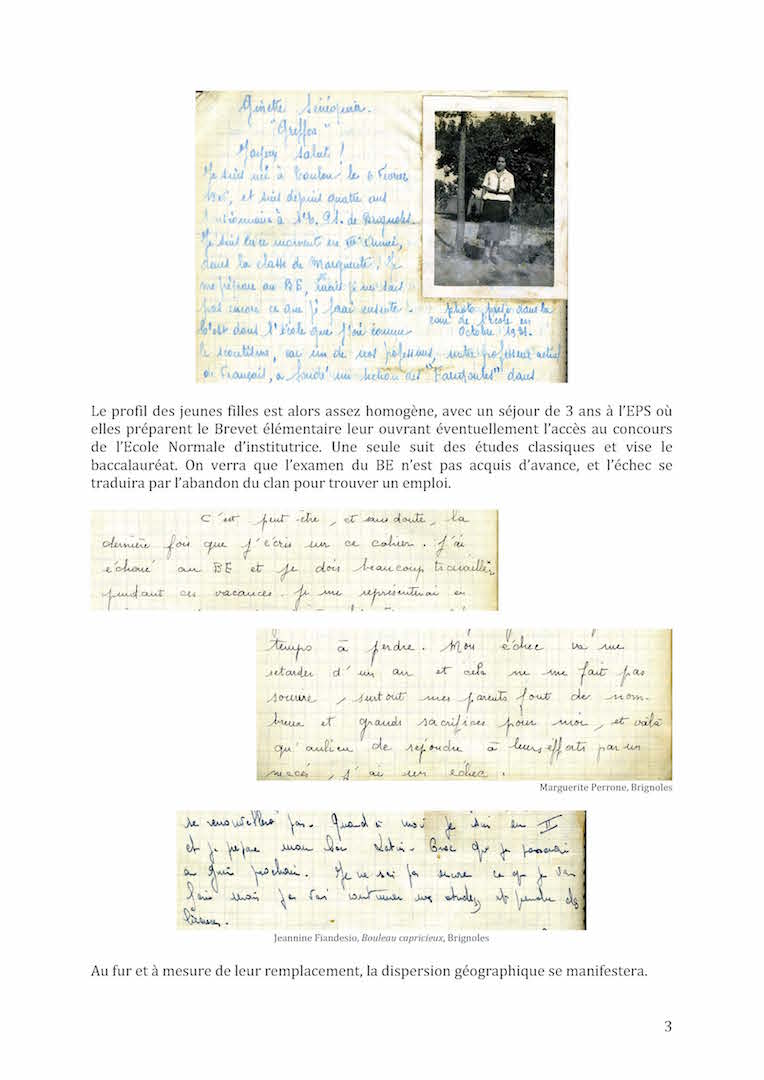 Ginette Sénéquier.
"Griffos"
salut !
Je suis né à Toulon le 6 Février
et suis depuis quatre ans
à l'E. P.S. de Brignoles.
Je suis en ce moment en IIIe Année,
dans la classe de Marguerite, Je
me prépare au BE, mais je ne sais
pas encore ce que je ferai ensuite.
C'est dans l'école que j'ai connu
le scoutisme, car un de nos professeurs, notre professeur actuel
de Français, a fondé une section des "Farigoules" dans
photo prise dans la
cour de l'école en
Octobre 1931.
Le profil des jeunes filles est alors assez homogène, avec un séjour de 3 ans à l'EPS où
elles préparent le Brevet élémentaire leur ouvrant éventuellement l'accès au concours
de l'Ecole Normale d'institutrice. Une seule suit des études classiques et vise le
baccalauréat. On verra que l'examen du BE n'est pas acquis d'avance, et l'échec se
traduira par l'abandon du clan pour trouver un emploi.
C'est peut-être, et sans doute, la
dernière fois que j'écris sur ce cahier. J'ai
échoué au BE et je dois beaucoup travailler
pendant ces vacances. Je me représenterai en
temps à perdre. Mon échec va me
retarder d'un an et cela ne me fait pas
sourire, surtout mes parents font de nom-
breux et grands sacrifices pour moi, et voilà
qu'au lieu de répondre à leurs efforts par un
succès, j'ai un échec.
Marguerite Perrone, Brignoles
se renouvellera pas. Quand à moi je suis en II
et je prépare mon Bac Latin- Grec que je passerai
en Juin prochain. Je ne sai pas encore ce que je vais
faire mais je vais continuer mes études et prendre des
licences.
Jeannine Fiandesio, Bouleau capricieux, Brignoles
Au fur et à mesure de leur remplacement, la dispersion géographique se manifestera.
3